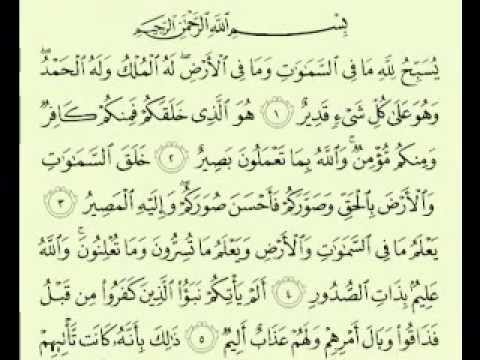 بِسْمِ اللَّهِ الرَّحْمَٰنِ الرَّحِيمِ
يُسَبِّحُ لِلَّهِ مَا فِي السَّمَٰوَٰتِ وَمَا فِي الْأَرْضِ ۖ لَهُ الْمُلْكُ وَلَهُ الْحَمْدُ ۖ
وَهُوَ عَلَىٰ كُلِّ شَيْءٍ قَدِيرٌ ١ هُوَ الَّذِي خَلَقَكُمْ فَمِنكُمْ كَافِرٌ
وَمِنكُم مُّؤْمِنٌ ۚ وَاللَّهُ بِمَا تَعْمَلُونَ بَصِيرٌ ٢ خَلَقَ السَّمَٰوَٰتِ
وَالْأَرْضَ بِالْحَقِّ وَصَوَّرَكُمْ فَأَحْسَنَ صُوَرَكُمْ ۖ وَإِلَيْهِ الْمَصِيرُ ٣
يَعْلَمُ مَا فِي السَّمَٰوَٰتِ وَالْأَرْضِ وَيَعْلَمُ مَا تُسِرُّونَ وَمَا تُعْلِنُونَ ۚ وَاللَّهُ
عَلِيمٌ بِذَاتِ الصُّدُورِ ٤ أَلَمْ يَأْتِكُمْ نَبَؤُا الَّذِينَ كَفَرُوا مِن قَبْلُ
فَذَاقُوا وَبَالَ أَمْرِهِمْ وَلَهُمْ عَذَابٌ أَلِيمٌ ٥ ذَٰلِكَ بِأَنَّهُ كَانَت تَّأْتِيهِمْ